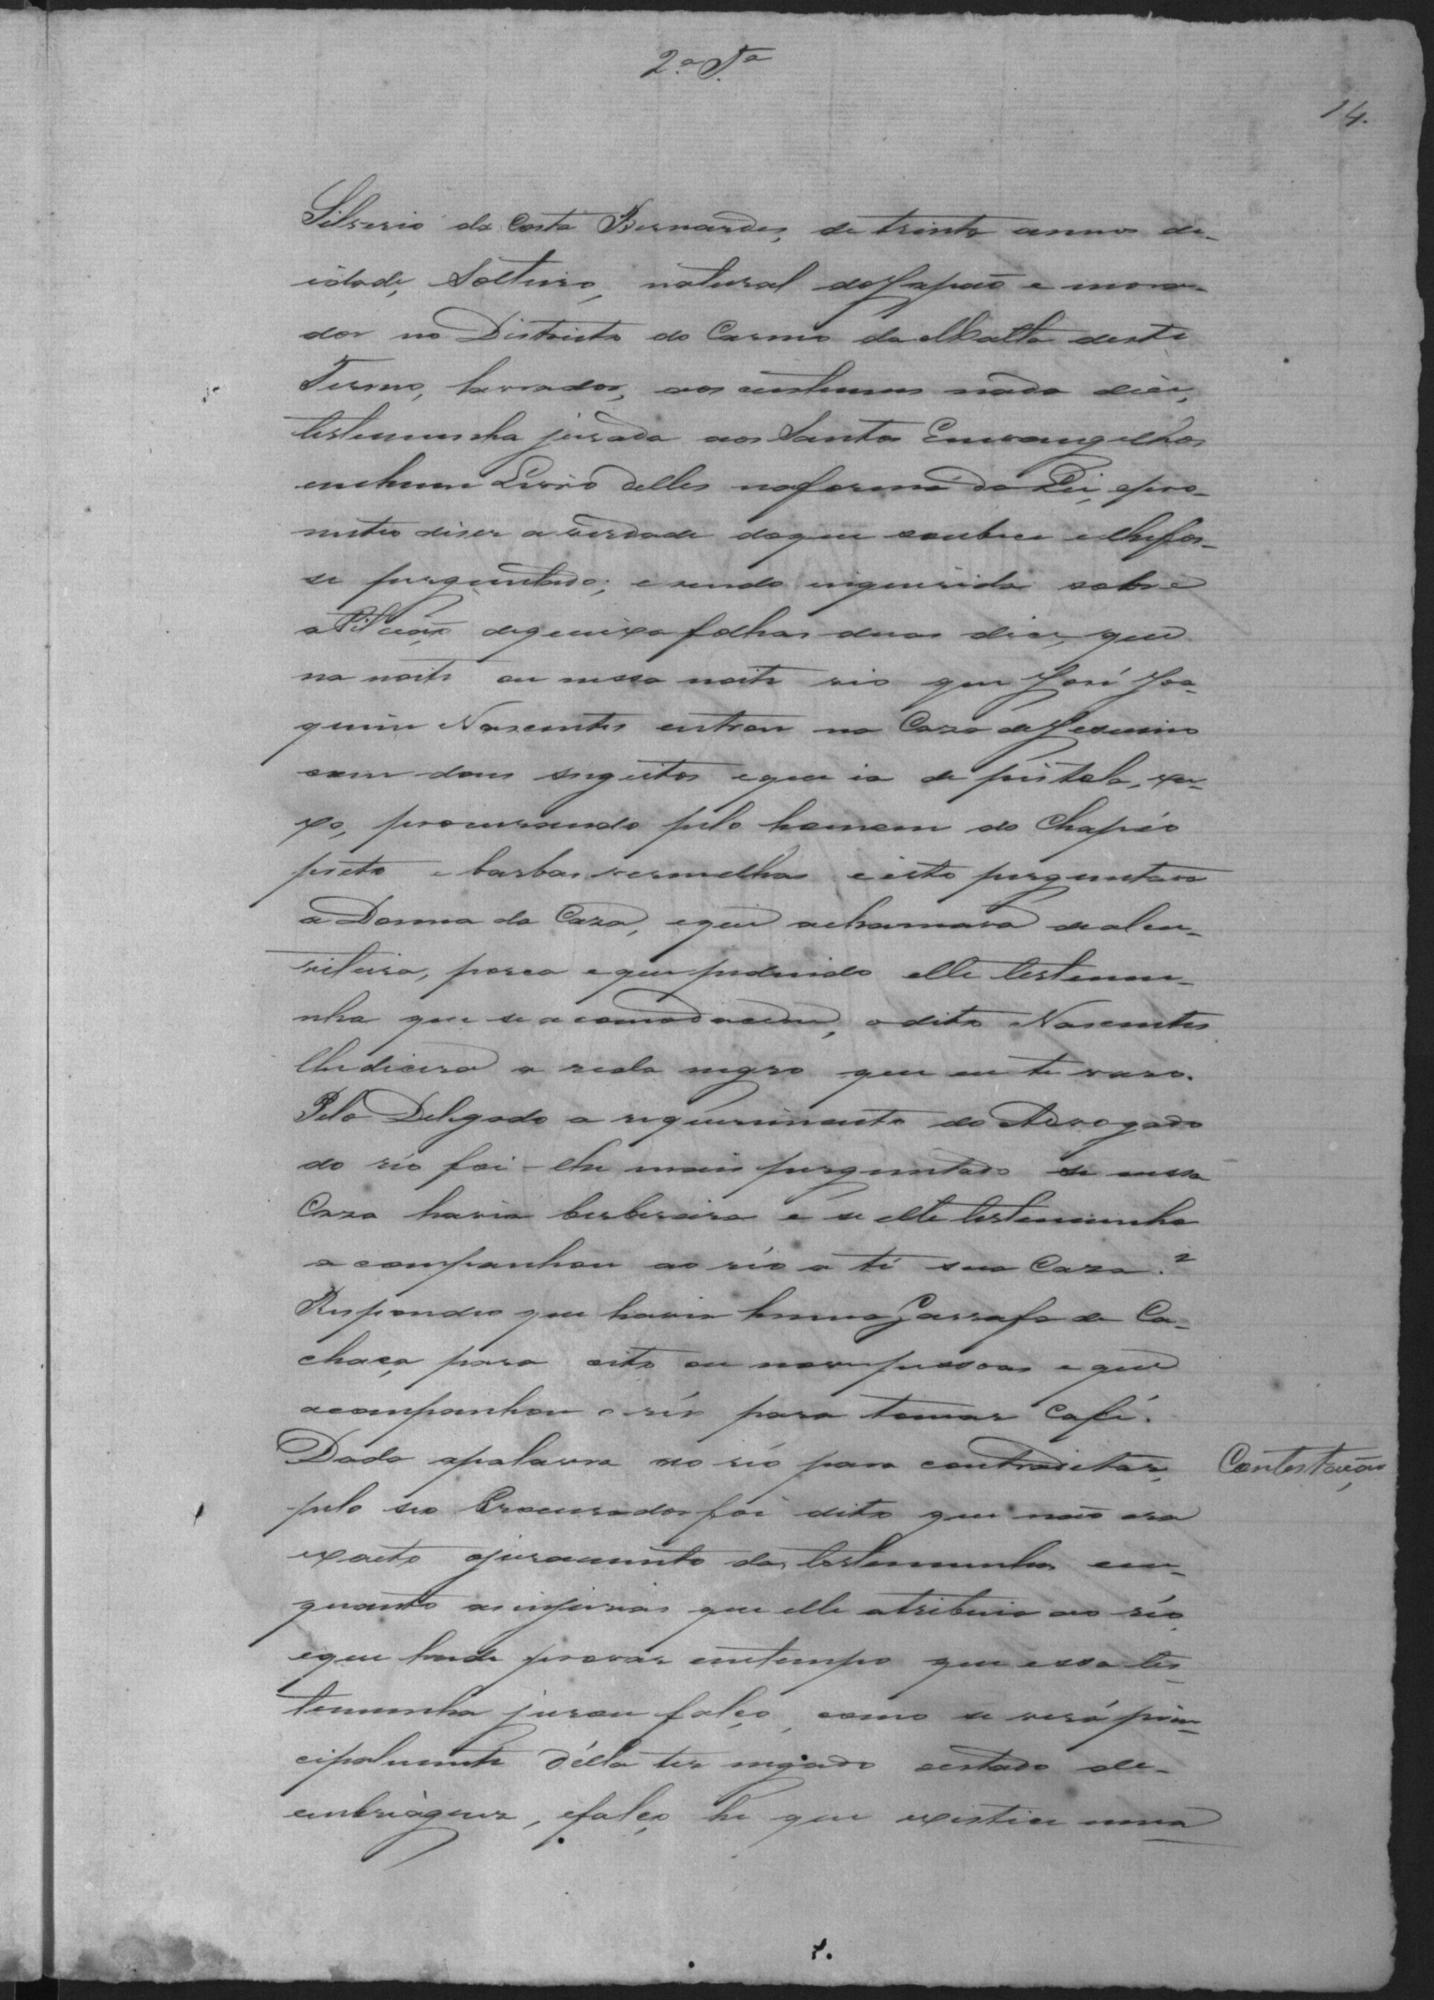 2.ª T.ª
14.
Silverio da Costa Bernardes, de trinta annos de
idade, Solteiro, natural do Japão e mora-
dor no Districto do Carmo da Matta deste
Termo, lavrador, aos custumes nada dice,
testemunha jurada aos Santos Envangelhos
em hum Livro delles na forma da Lei, e pro-
meteo diser a verdade do que soubece e lhe fos-
se perguntado; e sendo inquirida sobre
a Petição de queixa folhas duas dice, que
na noite ou nessa noite vio que José Joa-
quim Nascentes entrou na Caza de Jesuino
com dous sugeitos e que ia de pistola, 
procurando pelo homem do Chapéo
preto e barbas vermelhas e isto perguntava
a Donna da Caza, e que a chamava de alcu-
viteira, porca e que pedindo elle testemu-
nha que se acomodacem, o dito Nascentes
lhe dicera a reda negro que eu te varo.
Pelo Delegado a requerimento do Advogado
do réo foi-lhe mais perguntado se nessa
Caza havia beberaira e se elle testemunha
acompanhou ao réo a té sua Caza?
Respondeo que havia huma Garrafa de Ca-
chaça para oito ou nove pessoas e que
acompanhou o réo para tomar Café.
Dada a palavra ao réo para contradictar,
Contestação
pelo seo Procurador foi dito que não era
exacto o juramento da testemunha em-
quanto as injurias que elle atribuio ao réo,
e que hade provar em tempo que essa tes-
temunha jurou falço, como se verá prin-
cipalmente délla ter negado o estado de
embriàguez, e falço hé que existice uma